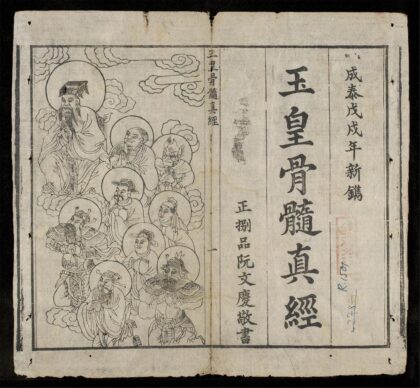 成泰戊戌年新鐫
玉皇骨髓真經
正捌品阮文慶敬書
玉皇骨髓真經
一